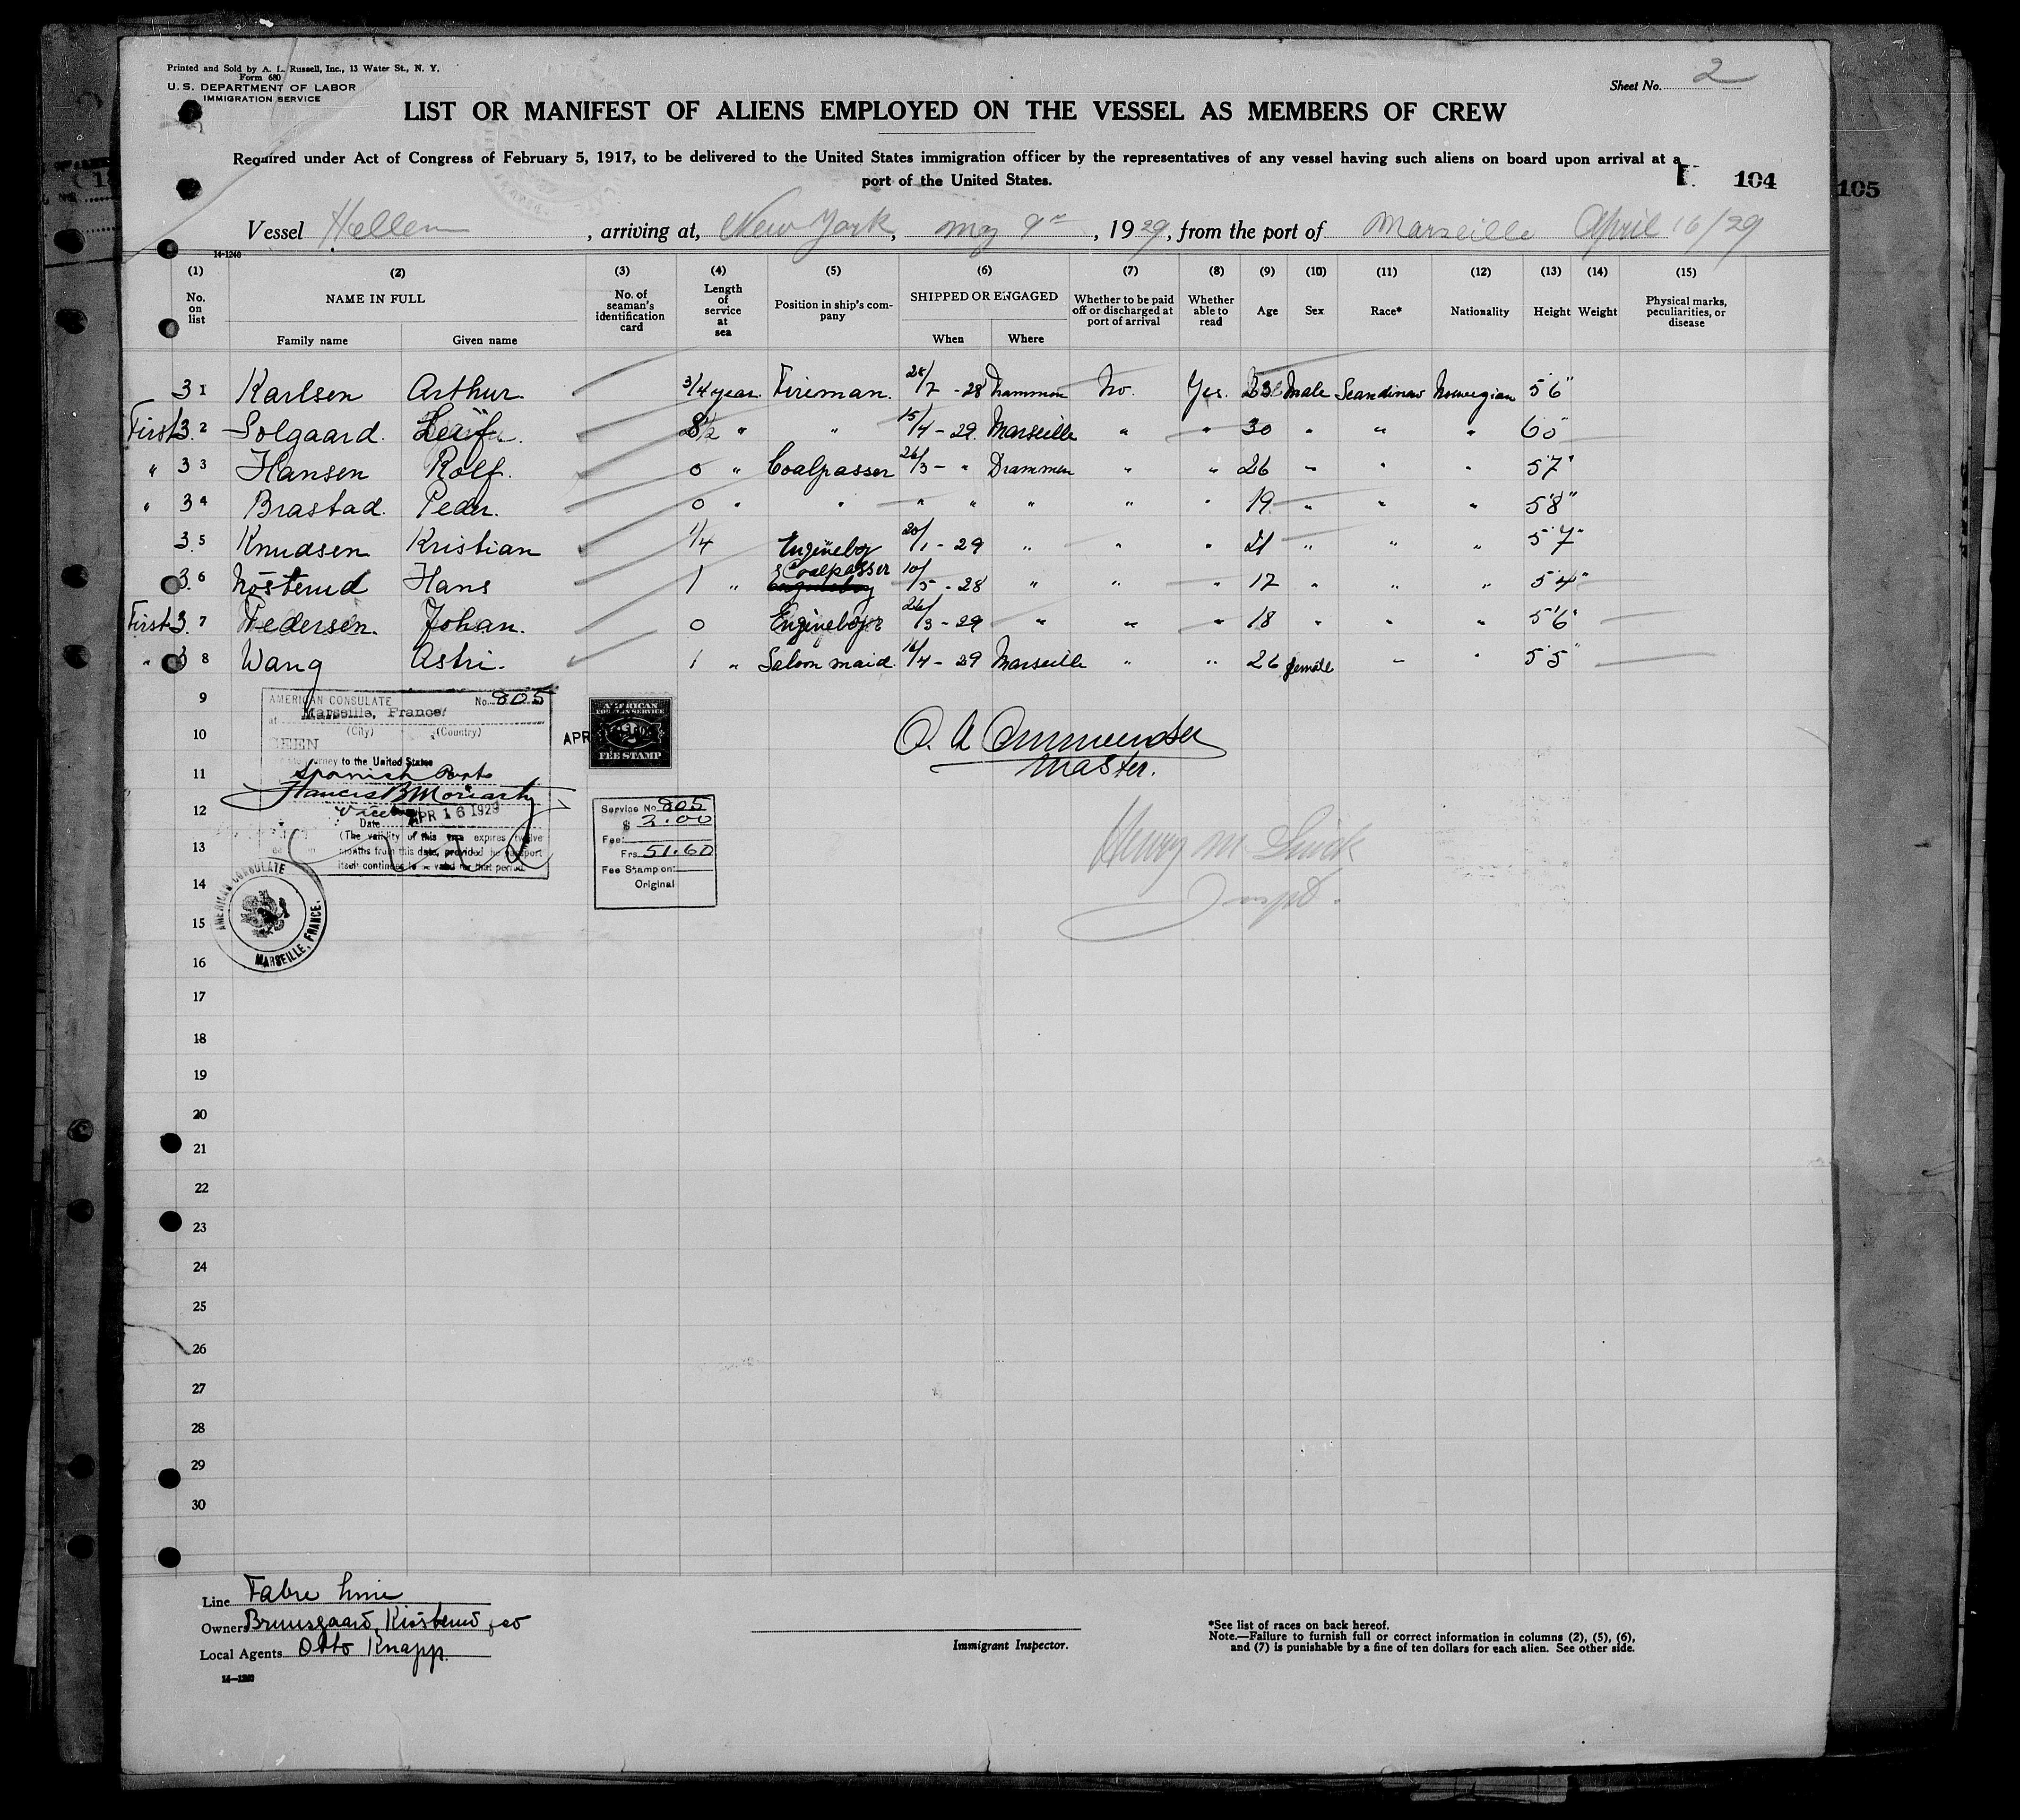 Printed and Sold by A. L. Russell, Inc., 13 Water St., N. Y.
Form 680
U. S. DEPARTMENT OF LABOR
IMMIGRATION SERVICE
Sheet No. 2
LIST OR MANIFEST OF ALIENS EMPLOYED ON THE VESSEL AS MEMBERS OF CREW
Required under Act of Congress of February 5, 1917, to be delivered to the United States immigration officer by the representatives of any vessel having such aliens on board upon arrival at a
port of the United States.
104
105
Vessel Hellen, arriving at, New York, May 9th, 1929, from the port of Marseille April 16/29
14-1240
(1) (2) (3) (4) (5) (6) (7) (8) (9) (10) (11) (12) (13) (14) (15)
No. on list NAME IN FULL Family name Given name No. of seaman's identification card Length of service at sea Position in ship's company SHIPPED OR ENGAGED When Where Whether to be paid off or discharged at port of arrival Whether able to read Age Sex Race* Nationality Height Weight Physical marks, peculiarities, or disease
31 Karlsen Arthur 3/4 year. Fireman. 28/7 - 28 Drammen No. Yes. Male Scandinav Norwegian 5'6"
First 32 Solgaard. Leif 8 1/2 " " 15/4 - 29. Marseille " " 30 " " " 6 0"
" 33 Hansen Rolf. 0 " Coalpasser 26/3 - " Drammen " " 26 " " " 5'7"
" 34 Brastad. Peder. 0 " " " " " " " 19 " " " 5'8"
35 Knudsen Kristian 1/4 Engineboy 20/1 - 29 " " " 21 " " " 5'7"
36 Nösterud Hans 1 " Coalpasser 10/5 - 28 " " " 17 " " " 5'4"
First 37 Pedersen. Johan. 0 Engineboy 26/3 - 29 " " " 18 " " " 5'6"
" 38 Wang Astri. 1 " Saloon maid. 16/4 - 29 Marseille " " 26 female " " 5'5"
9
10
11
12
13
14
15
16
17
18
19
20
21
22
23
24
25
26
27
28
29
30
AMERICAN CONSULATE No. 805
at Marseille, France.
(City) (Country)
SEEN
journey to the United States
Spanish Ports
Francis B Moriarty
Vice
Date APR 16 1929
(The validity of this visa expires twelve
months from this date, provided the passport
itself continues to be valid for that period.
AMERICAN CONSULATE
MARSEILLE, FRANCE.
APR
AMERICAN
FOREIGN SERVICE
FEE STAMP
Service No. 805
$ 2.00
Fee:
Frs 51.60
Fee Stamp on:
Original
Master.
Henry M.
Inspt.
Line Fabre Line
Owners Bruusgaard, Kiösterud & Co
Local Agents Otto Knapp.
14-1240
Immigrant Inspector.
*See list of races on back hereof.
Note.—Failure to furnish full or correct information in columns (2), (5), (6),
and (7) is punishable by a fine of ten dollars for each alien. See other side.